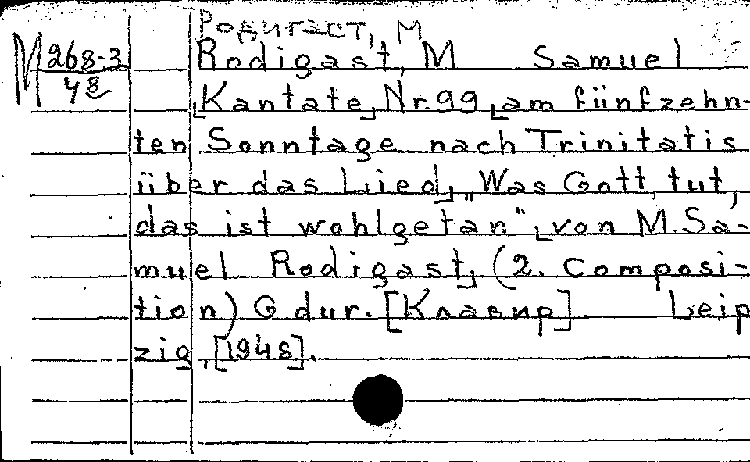 Родигаст, М
М 268-3/48
Rodigast, M Samuel
[Kantate] Nr.99 [am fünfzehn-
ten Sonntage nach Trinitatis
über das Lied] „Was Gott tut,
das ist wohlgetan" [von M. Sa-
muel Rodigast] (2. Composi-
tion) G dur. [Клавир] Leip
zig, [1948].